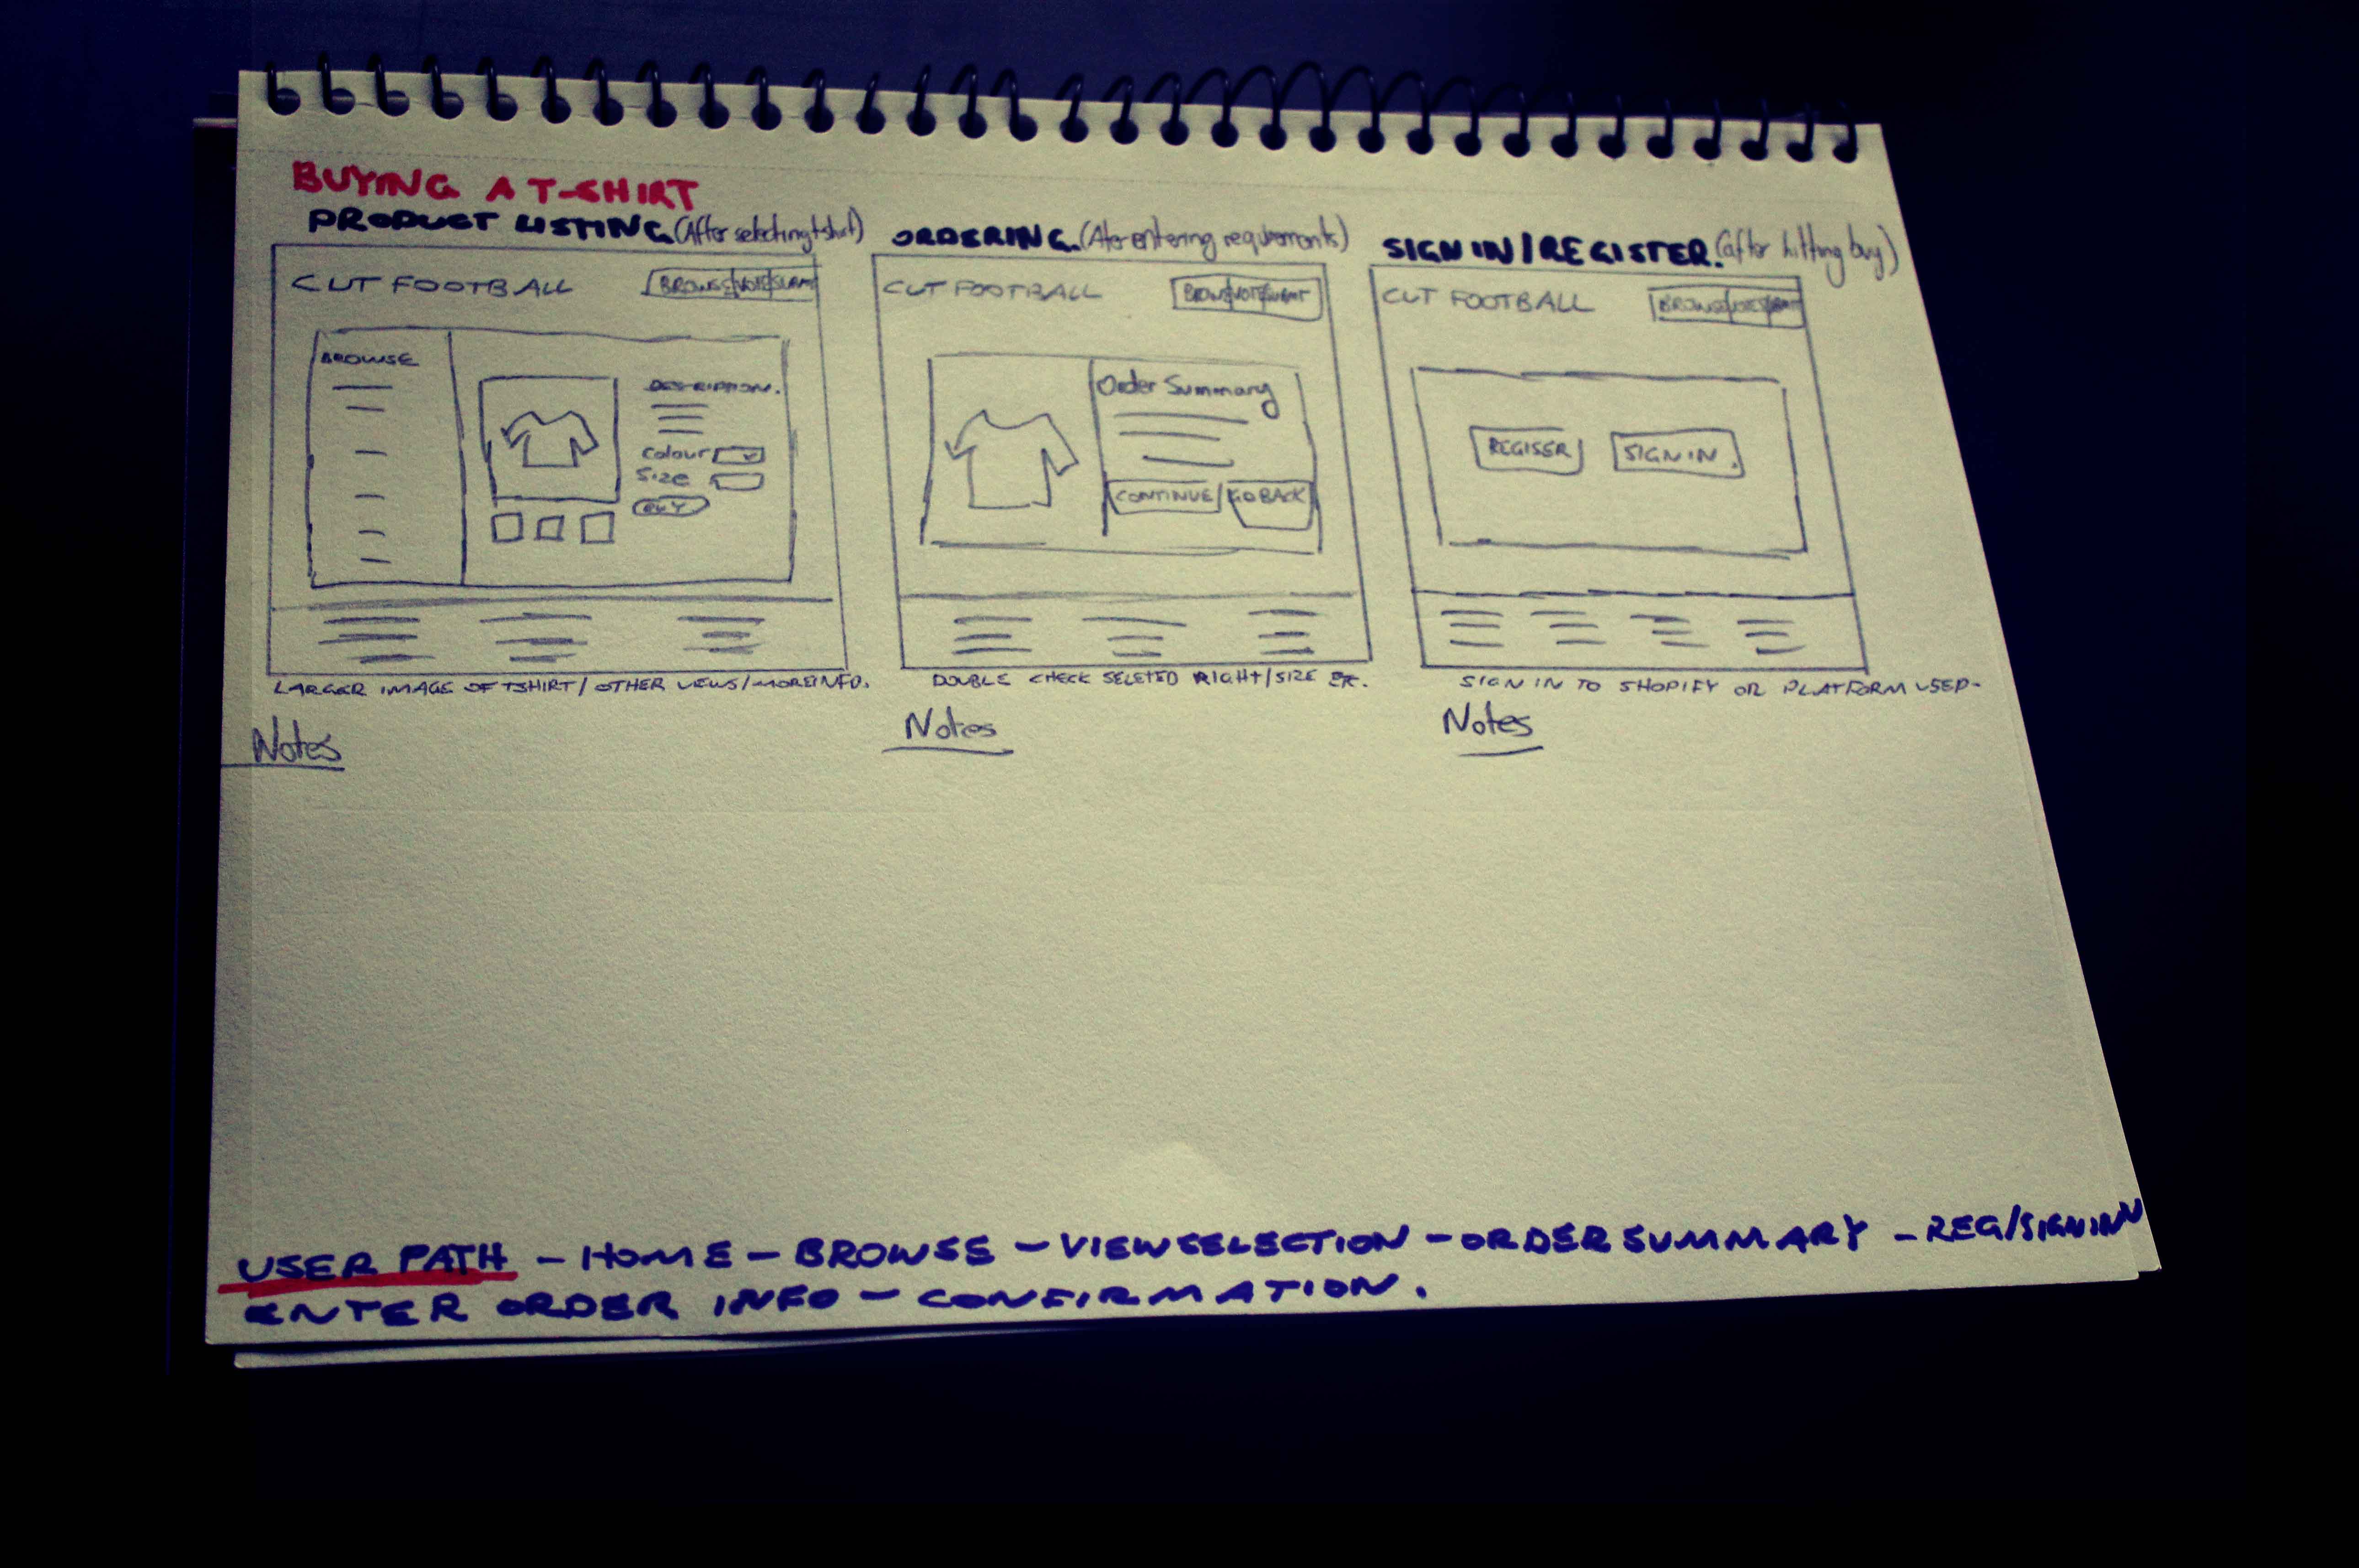 BUYING A T-SHIRT
PRODUCT LISTING (After selecting tshirt)
CUT FOOTBALL
BROWSE VOTE SUBMIT
BROWSE
DESCRIPTION.
Colour
Size
BUY
LARGER IMAGE OF TSHIRT / OTHER VIEWS / MORE INFO.
Notes
ORDERING. (After entering requirements)
CUT FOOTBALL
BROWSE VOTE SUBMIT
Order Summary
CONTINUE / GO BACK
DOUBLE CHECK SELETED RIGHT / SIZE ETC.
Notes
SIGN IN / REGISTER. (after hitting buy)
CUT FOOTBALL
BROWSE VOTE
REGISER
SIGN IN.
SIGN IN TO SHOPIFY OR PLATFORM USED.
Notes
USER PATH - HOME - BROWSE - VIEW SELECTION - ORDER SUMMARY - REG/SIGN IN
ENTER ORDER INFO - CONFIRMATION.